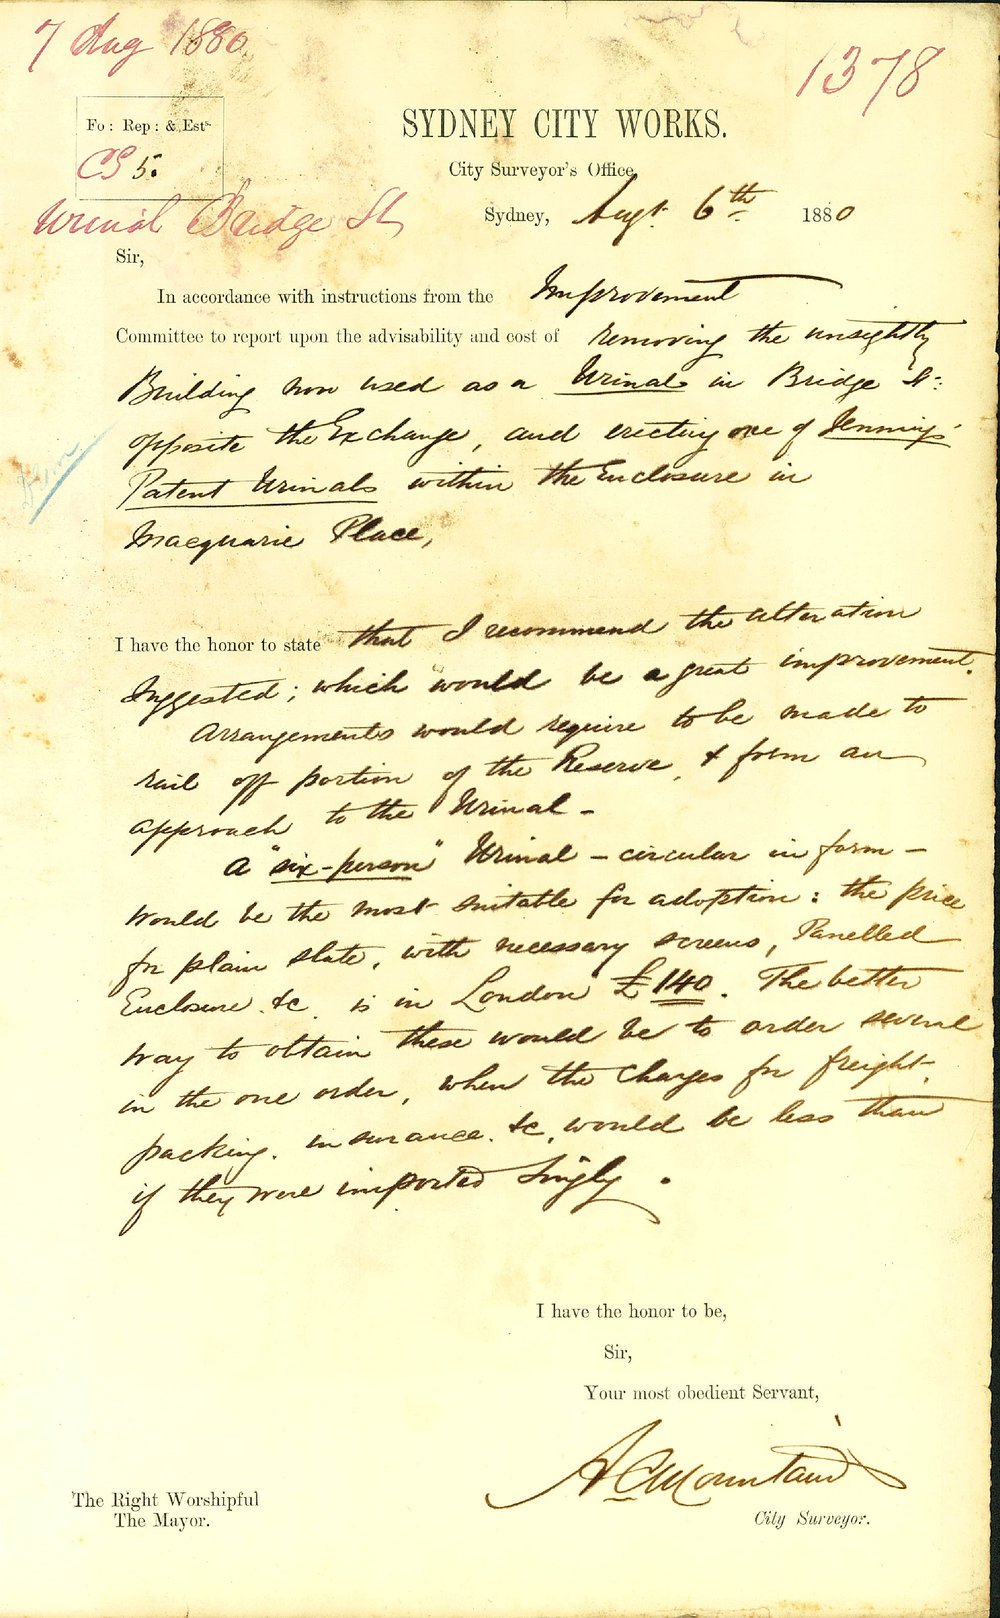 7 Aug 1880
1378
Fo: Rep: & Est.
CS 5.
Urinal Bridge St
SYDNEY CITY WORKS.
City Surveyor's Office,
Sydney, Augt. 6th 1880
Sir,
In accordance with instructions from the Improvement
Committee to report upon the advisability and cost of removing the unsightly
Building now used as a Urinal in Bridge St:
opposite the Exchange, and erecting one of Jennings'
Patent Urinals within the Enclosure in
Macquarie Place,
I have the honor to state that I recommend the alteration
suggested; which would be a great improvement.
Arrangements would require to be made to
rail off portion of the Reserve, & form an
approach to the Urinal –
A "six-person" Urinal – circular in form –
would be the most suitable for adoption: the price
for plain slate, with necessary screens, Panelled
Enclosure &c. is in London £140. The better
way to obtain these would be to order several
in the one order, when the charges for freight,
packing, insurance, &c, would be less than
if they were imported singly.
I have the honor to be,
Sir,
Your most obedient Servant,
A C Mountain
City Surveyor.
The Right Worshipful
The Mayor.